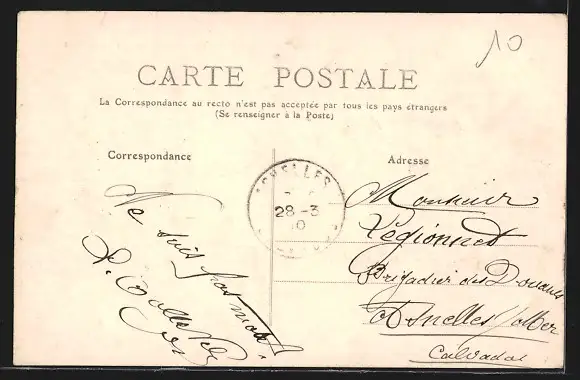 10
CARTE POSTALE
La Correspondance au recto n'est pas acceptée par tous les pays étrangers
(Se renseigner à la Poste)
Correspondance
Adresse
28 -3
10
Ne suis pas mort
Monsieur
Légionnet
Brigadier des Douanes
Asnelles s/Mer
Calvados